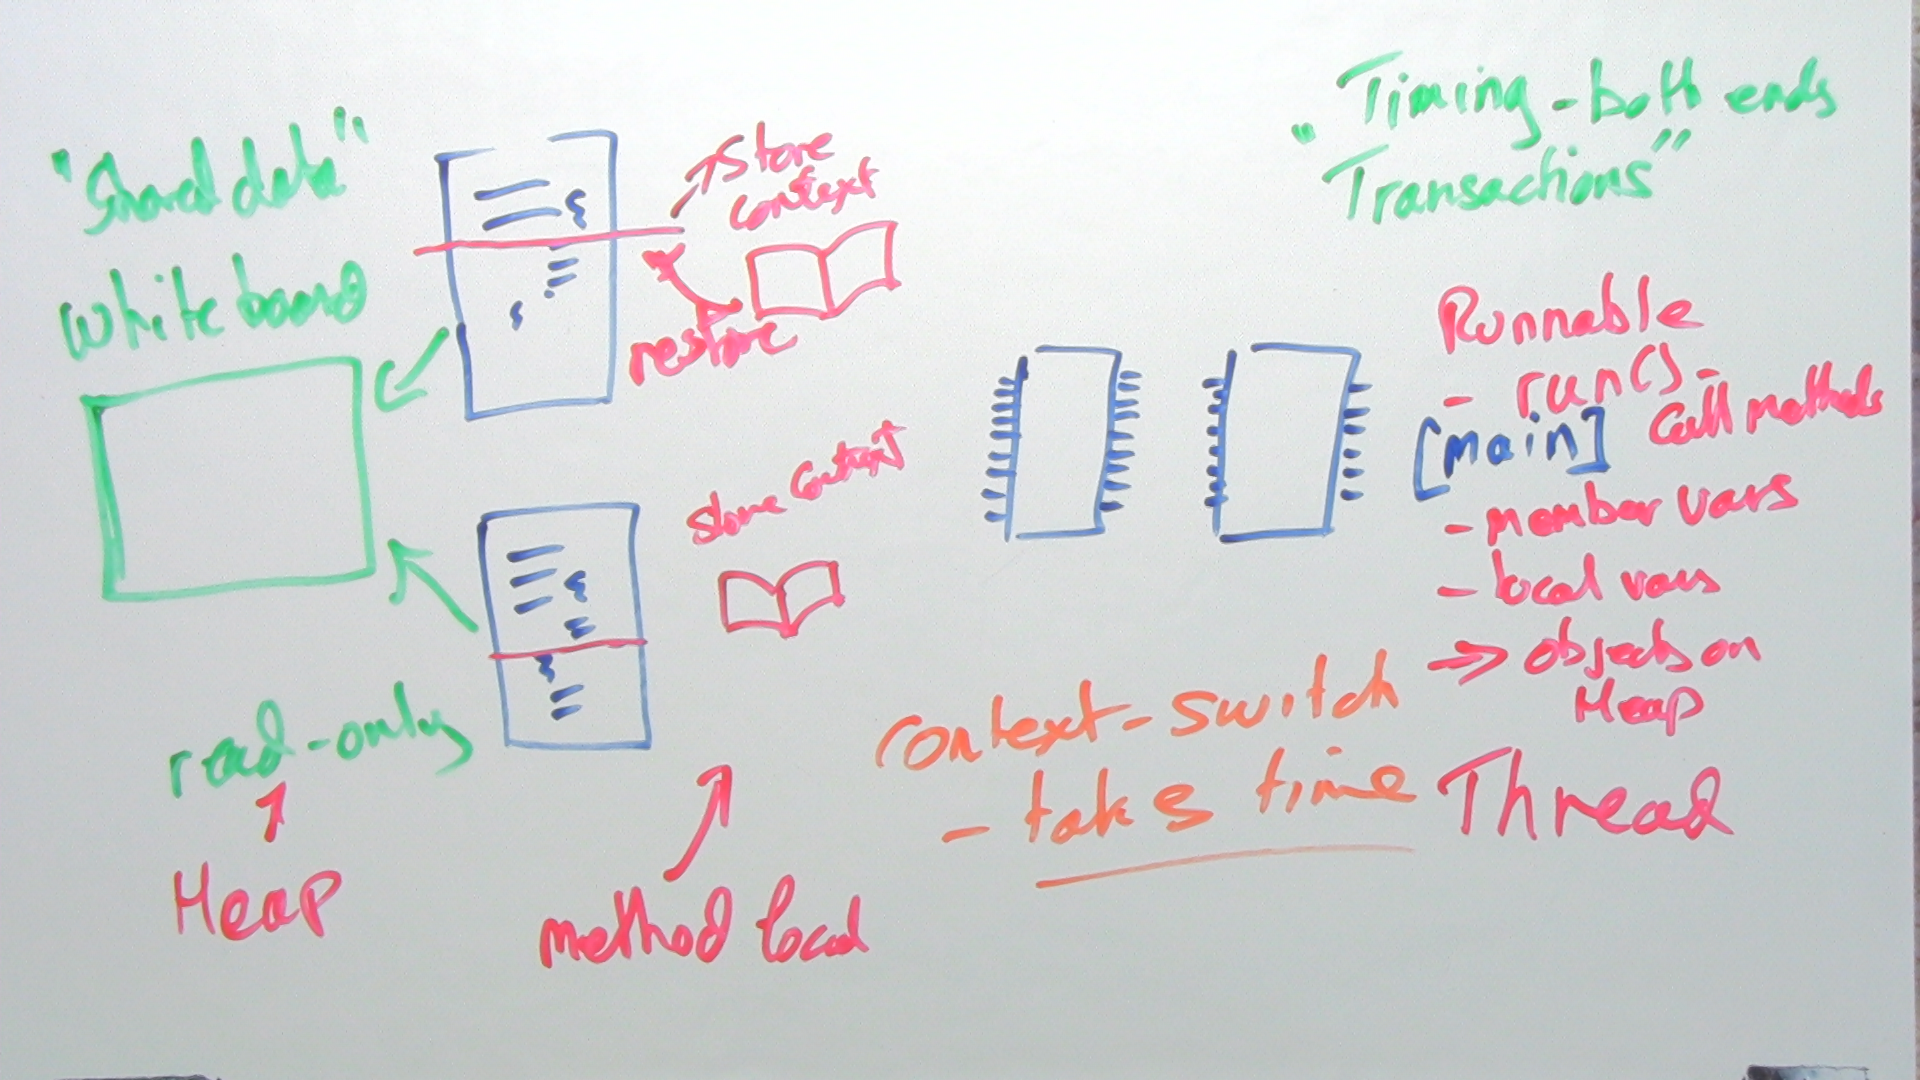 "Shared data"
Whiteboard
Store
context
restore
Store context
read-only
Heap
method local
Timing - both ends
"Transactions"
Runnable
- run() -
call methods
[main]
- member vars
- local vars
=> objects on
Heap
Thread
context-switch
- takes time